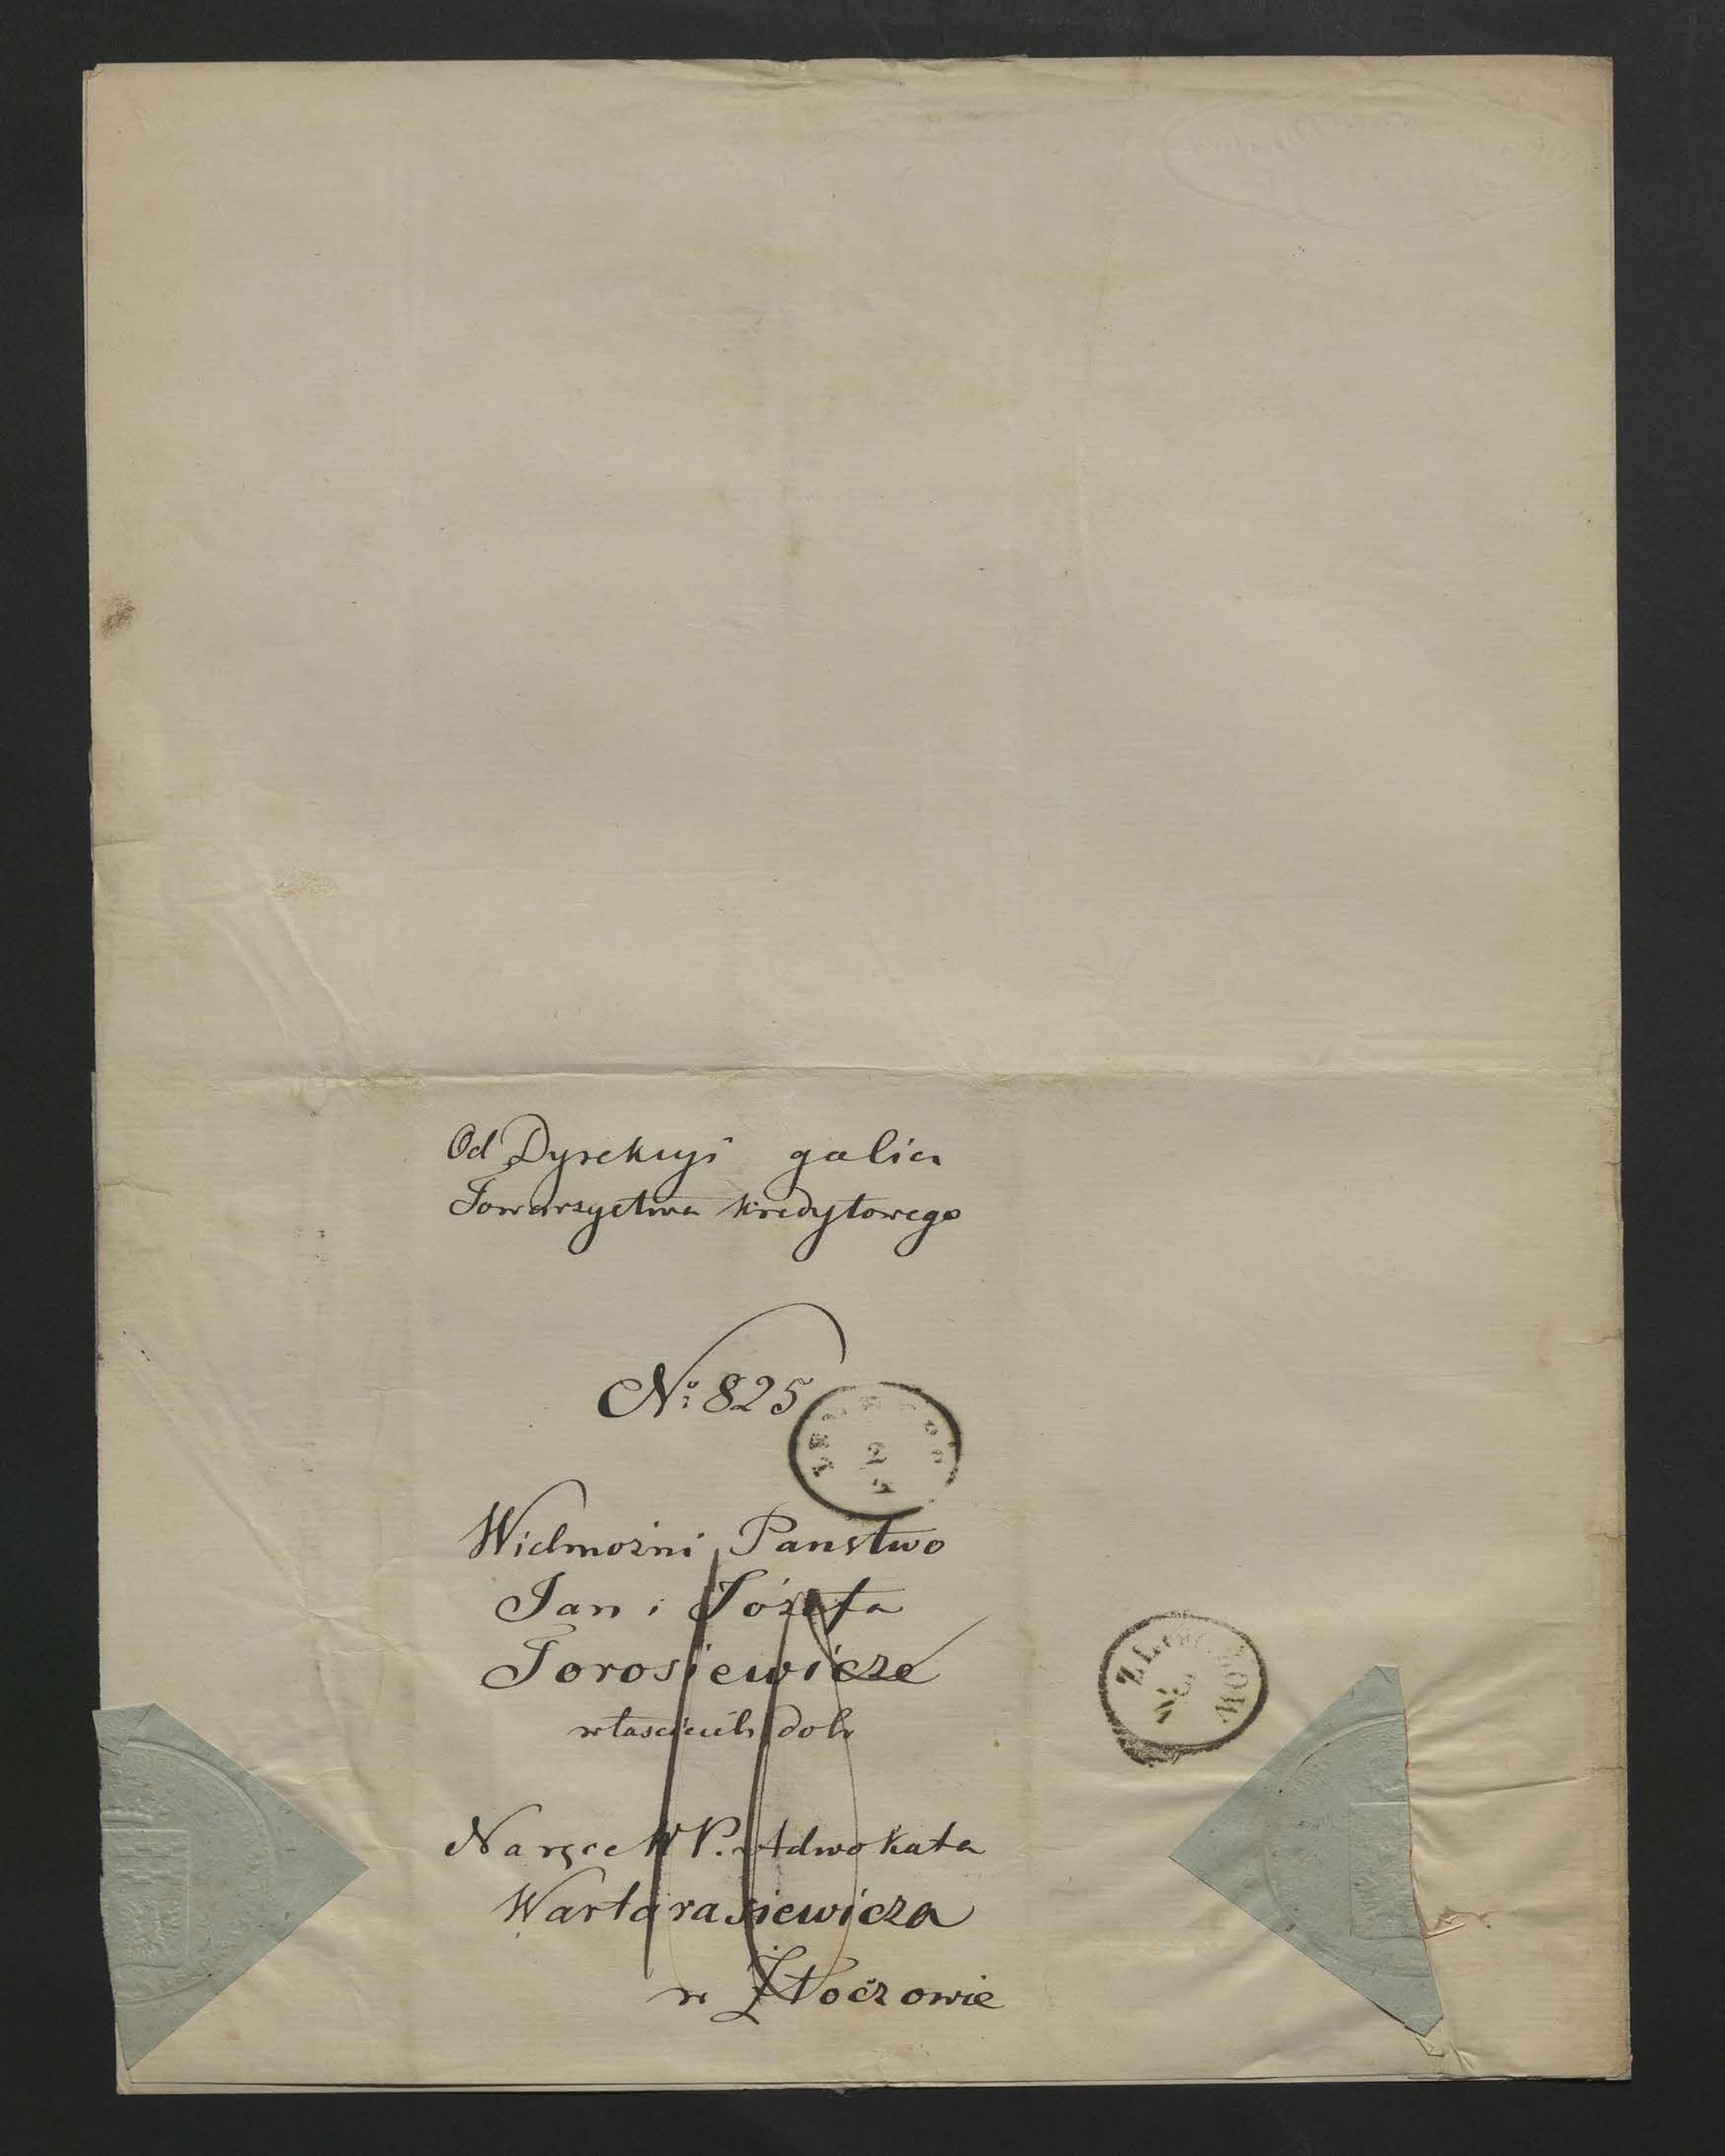 Od Dyrekcyi galic
Towarzystwa kredytowego
No: 825
LEMBERG
2
Wielmożni Państwo
Jan i Józefa
Torosiewicze
właściciele dobr
Na ręce W P. Adwokata
Wartarasiewicza
w Złoczowie
ZLOCZOW